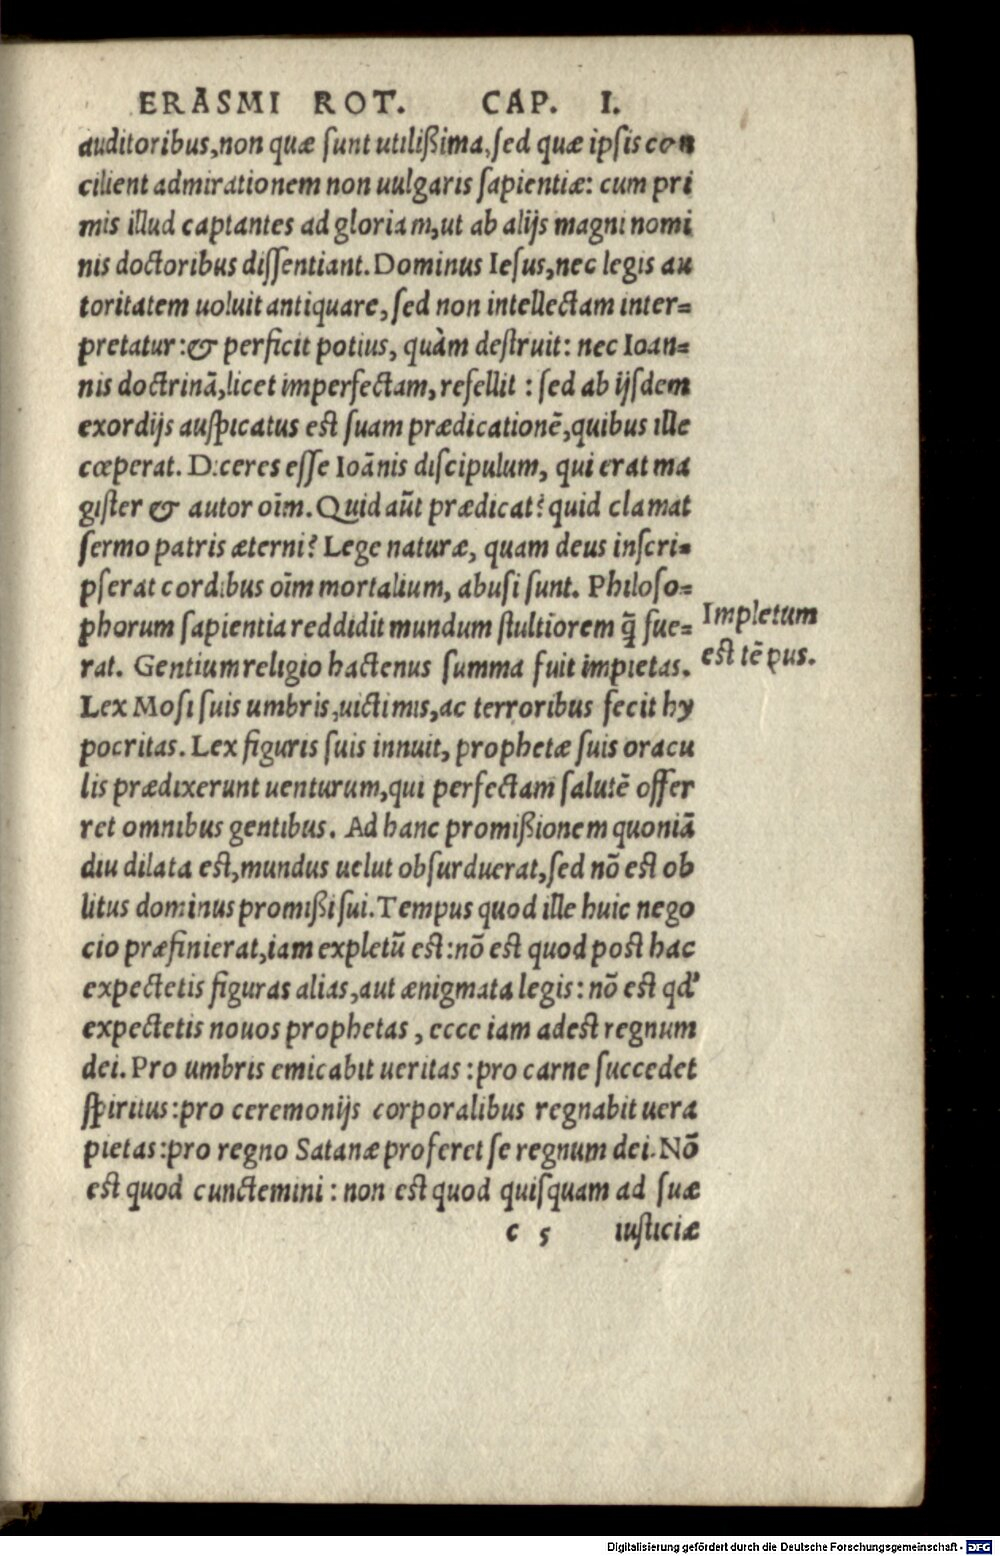 ERASMI ROT. CAP. I.
auditoribus, non quæ sunt utilißima, sed quæ ipsis con
cilient admirationem non uulgaris sapientiæ: cum pri
mis illud captantes ad gloriam, ut ab alijs magni nomi
nis doctoribus dissentiant. Dominus Iesus, nec legis au
toritatem uoluit antiquare, sed non intellectam inter=
pretatur: & perficit potius, quàm destruit: nec Ioan=
nis doctrinā, licet imperfectam, refellit : sed ab ijsdem
exordijs auspicatus est suam prædicationē, quibus ille
cœperat. Diceres esse Ioānis discipulum, qui erat ma
gister & autor oīm. Quid aūt prædicat? quid clamat
sermo patris æterni? Lege naturæ, quam deus inscri=
pserat cordibus oīm mortalium, abusi sunt. Philoso=
phorum sapientia reddidit mundum stultiorem q̃ fue=
rat. Gentium religio hactenus summa fuit impietas.
Lex Mosi suis umbris, uictimis, ac terroribus fecit hy
pocritas. Lex figuris suis innuit, prophetæ suis oracu
lis prædixerunt uenturum, qui perfectam salutē offer
ret omnibus gentibus. Ad hanc promißionem quoniā
diu dilata est, mundus uelut obsurduerat, sed nō est ob
litus dominus promißi sui. Tempus quod ille huic nego
cio præfinierat, iam expletū est: nō est quod post hac
expectetis figuras alias, aut ænigmata legis: nō est qd'
expectetis nouos prophetas, ecce iam adest regnum
dei. Pro umbris emicabit ueritas: pro carne succedet
spiritus: pro ceremonijs corporalibus regnabit uera
pietas: pro regno Satanæ proferet se regnum dei. Nō
est quod cunctemini: non est quod quisquam ad suæ
c 5 iusticiæ
Impletum
est tēpus.
Digitalisierung gefördert durch die Deutsche Forschungsgemeinschaft - DFG